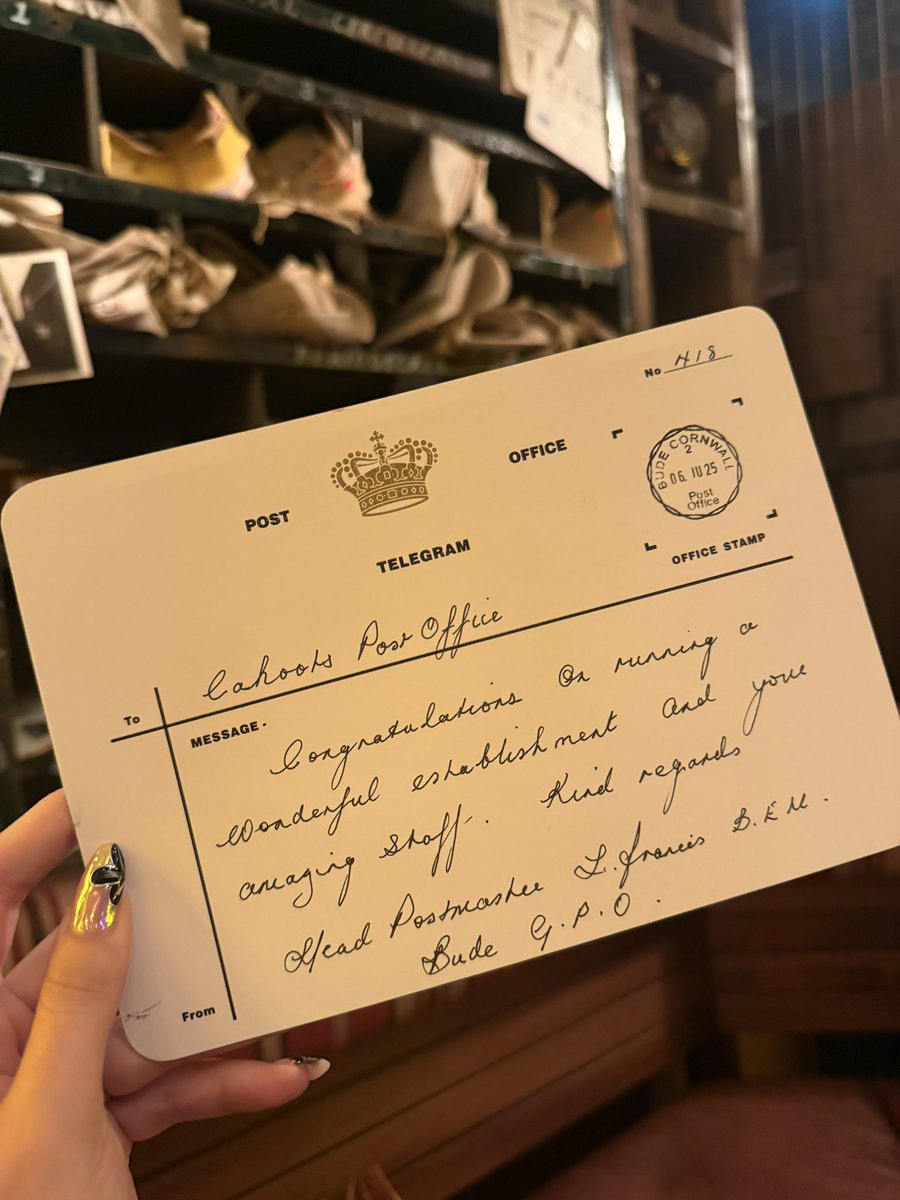 1
No 418
POST OFFICE
TELEGRAM
BUDE CORNWALL
2
06. IU 25
Post
Office
OFFICE STAMP
To Cahoots Post Office
MESSAGE.
Congratulations On running a
Wonderful establishment and your
amazing staff. Kind regards
Head Postmaster L. Francis B.E.M.
Bude G.P.O.
From